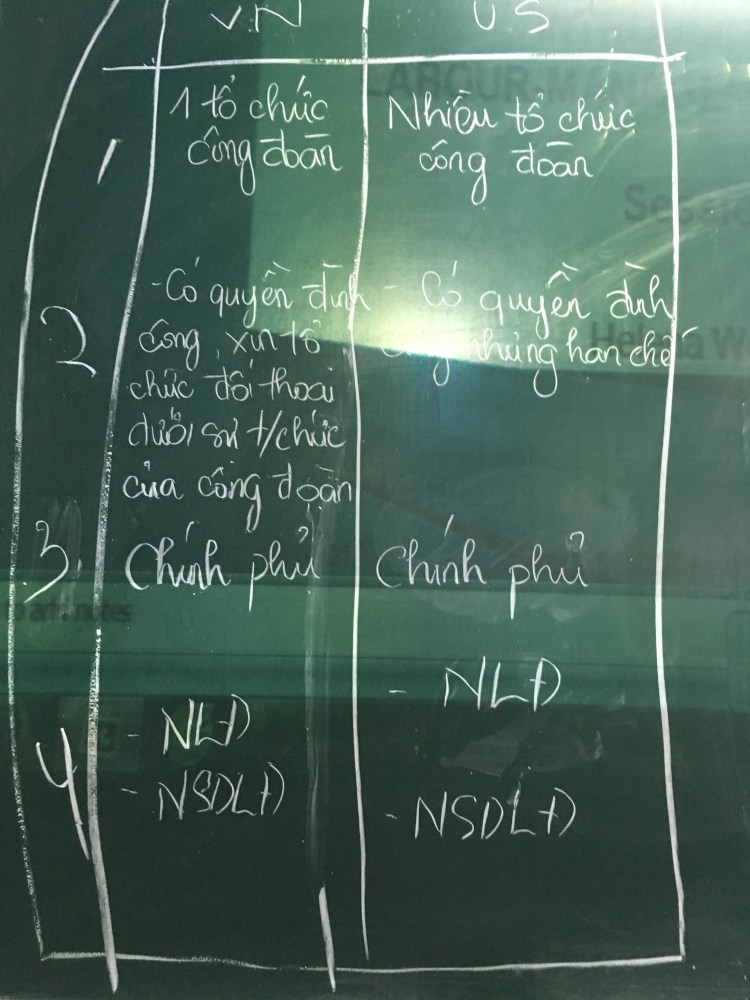 VN US
1 1 tổ chức công đoàn
Nhiều tổ chức công đoàn
2 - Có quyền đình
công, xin tổ
chức đối thoại
dưới sự t/chức
của công đoàn
- Có quyền đình
công nhưng hạn chế
3. Chính phủ
Chính phủ
4 - NLĐ
- NSDLĐ
- NLĐ
- NSDLĐ
LABOUR MANA
notes